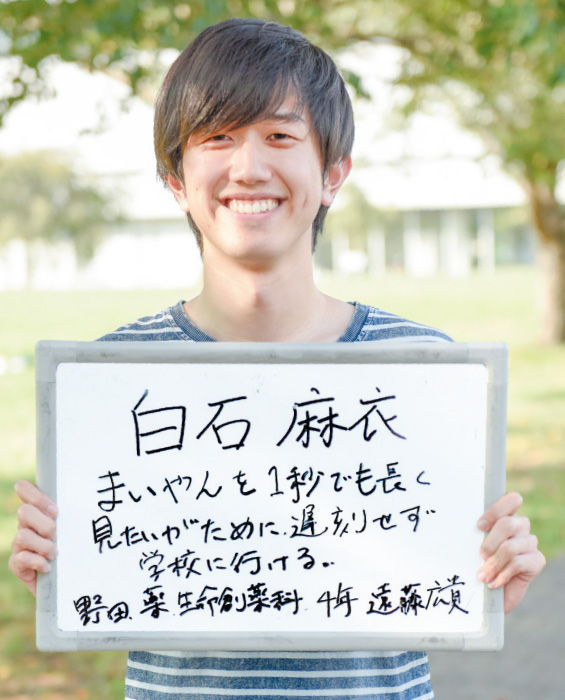 白石 麻衣
まいやんを1秒でも長く
見たいがために、遅刻せず
学校に行ける。
野田、薬、生命創薬科 4年 遠藤広貴